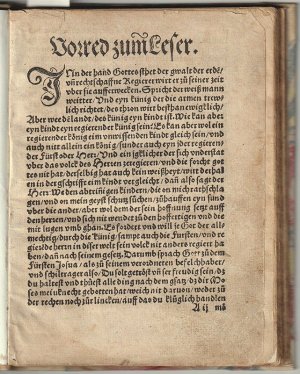 Vorred zum̃ Leser.
IN der hand Gottes sthet der gwalt der erdē/
vn̄ rechtschaffne Regierer wirt er zů seiner zeit
vber sie aufferwecken. Spricht der weiß mann
weitter. Vnd eyn künig der die armen trew
lich richtet / des thron wirt besthan ewiglich /
Aber wee de landt / des künig eyn kindt ist. Wie kan aber
eyn kindt eyn regierender künig sein? Es kan aber wol ein
regierender König eim vnwissenden kindt gleich sein / vnd
auch nitt allein ein künig / sunder auch eyn jder regierens
der Fürst oder Herr. Vnd ein jgklicher der sich vndersthat
vber das volck des Herren zeregieren / vnd die forcht gots
nit hat / derselbig hat auch kein weißheyt / wirt der halb
en in der gschrifft eim kindt verglicht / dañ also sagt der
Herr: We den abtrünigen kindern / die on mich rathschla
gen / vnd on mein geyst schutz süchen / zůhauffen eyn sünd
vber die ander / aber wol dem der sein hoffnung setzt auff
den herren / vnd sich nit wendet zů den hoffertigen vnd die
mit lugen vmb ghan. Es fordert vnd will se Got der all
mechtig / durch die künig / sampt auch die Fürsten / vnd re
gielde herrn in diser welt sein volck nit anders regiert ha
ben / dañ nach seinem gsatz. Darumb sprach Gott zů dem
Fürsten Josua / als zů seinem verordneten befelchhaber /
vnd schiltrager also / Du solt getröst vñ ser freudig sein / dz
du haltest vnd thüest alle ding nach dem gsatz / dz dir Mo
ses mein knecht gebotten hat / weich nit daruon / weder zů
der rechten noch zůr lincken / auff das du klüglich handlen
A ij